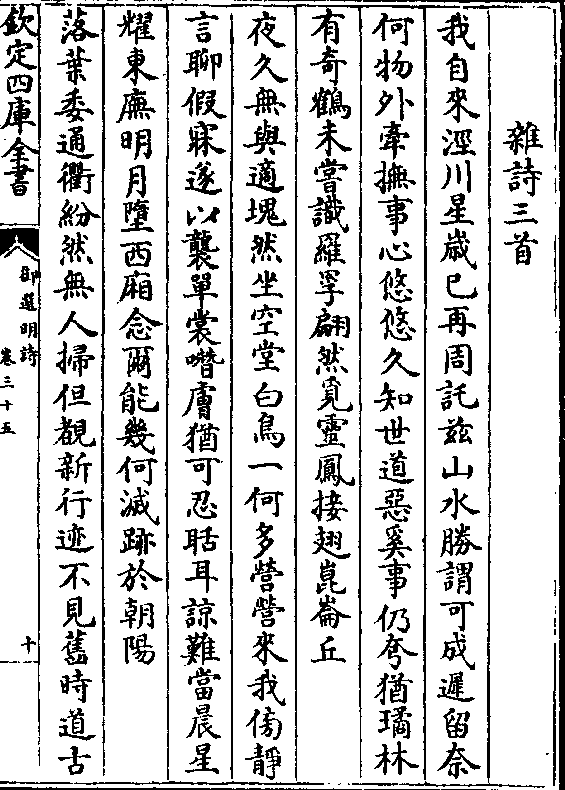 雜詩三首
我自來涇川星歲已再周託兹山水勝謂可成遲留奈
何物外牽撫事心悠悠久知世道惡奚事仍夸猶璚林
有奇鶴未嘗識羅罦翩然覓靈鳳接翅崑崙丘
夜久無與適塊然坐空堂白鳥一何多營營來我傍靜
言聊假寐遂以襲單裳噆膚猶可忍聒耳諒難當晨星
耀東廡明月墮西廂念爾能幾何滅跡於朝陽
落葉委通衢紛然無人掃但觀新行迹不見舊時道古
欽定四庫全書
御選明詩
卷三十五
十